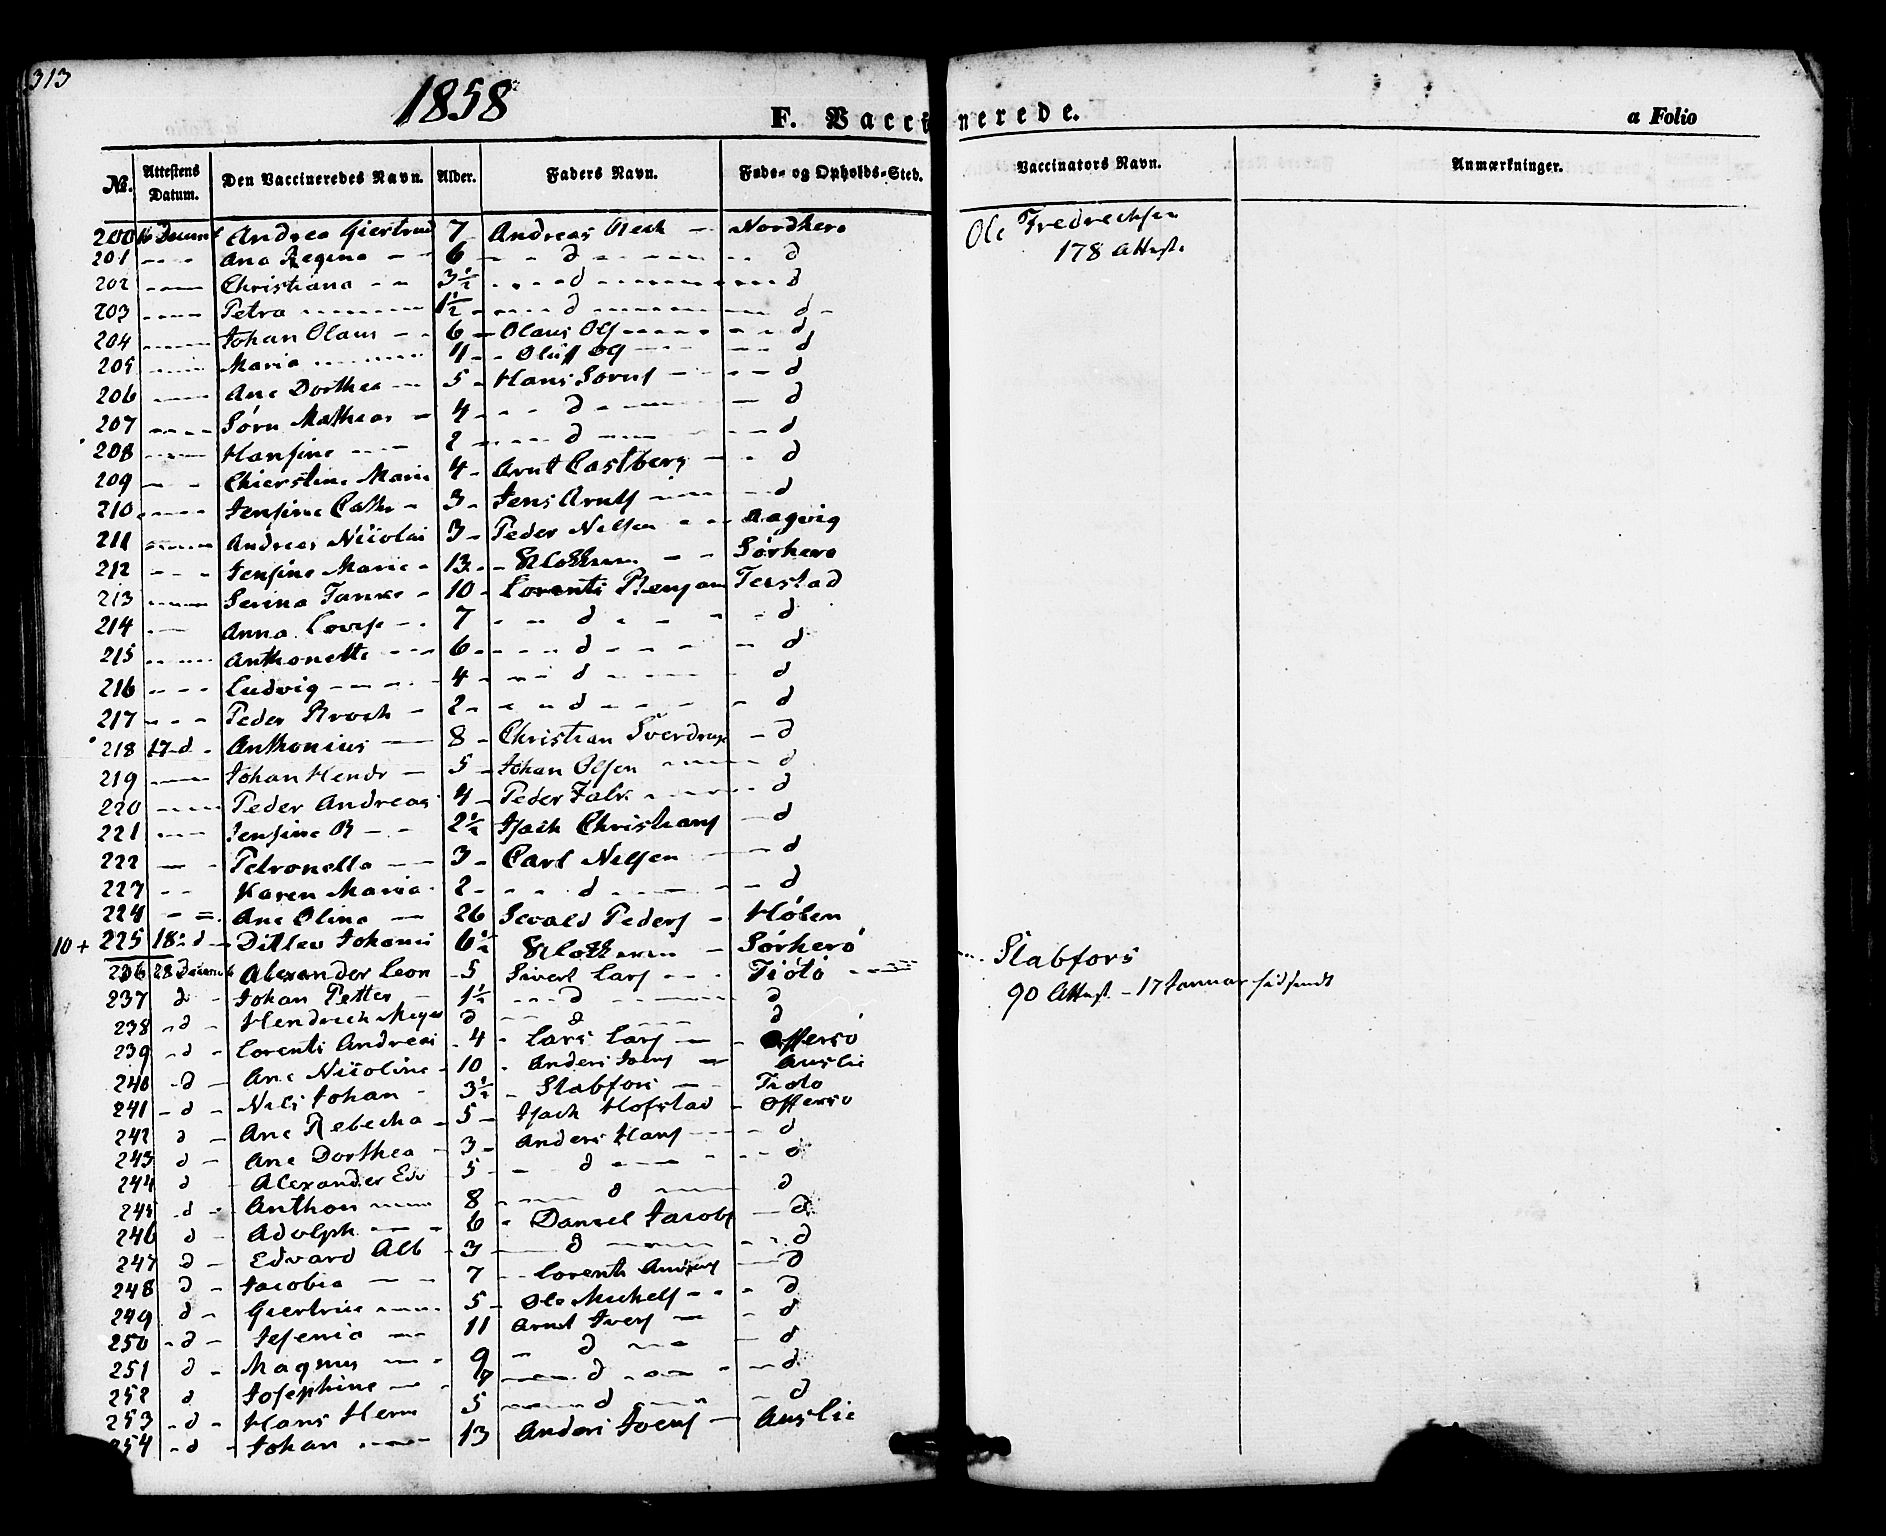 313
1858
F. Vaccinerede.
a Folio
No. Attestens Datum. Den Vaccineredes Navn. Alder. Faders Navn. Føde- og Opholds-Sted. Vaccinators Navn. Anmærkninger.
200 Andrea Giertrud 7 Andreas Nordherø Ole Fredrechsen
201 Ana Regina 6 d d 178 Attest.
202 Christiana 3½ d d
203 Petra 1½ d d
204 Johan Olaus 6 Olaus Ols d
205 Maria 11 Oluf d
206 Ane Dorthea 5 Hans Sorens d
207 Sørn Mathias 4 d d
208 Hansine 2 d d
209 Chierstine Marie 4 Arnt Castberg d
210 Jensine Cath 3 Jens Arnts d
211 Andreas Nicolai 3 Peder Nelsen Aagvig
212 Jensine Marie 13 Klokkeren Sørherø
213 Serina Tanke 10 Lorents Benjam Terstad
214 Anna Lovise 7 d d
215 Anthonette 6 d d
216 Ludvig 4 d d
217 Peder Kroch 2 d d
218 17 d Anthonius 8 Christian Sverdrup d
219 Johan Hendr 5 Johan Olsen d
220 Peder Andreas 4 Peder Falk d
221 Jensine B 2½ Isach Christians d
222 Petronella 3 Carl Nelsen d
223 Karen Maria 2 d d
224 Ane Olina 26 Sevald Peders Høben
10+ 225 18 d Ditlev Johannes 6½ Klokkeren Sørherø Slabfors
236 28 Decemb Alexander Leon 5 Sivert Lars Tiøtø 90 Attest. - 17 Januar
237 d Johan Petter 1½ d d
238 d Hendrich Meyer d d d
239 d Lorents Andreas 4 Lars Lars Offersø
240 d Ane Nicoline 10 Anders Auslie
241 d Nils Johan 3½ Slabfors Tiøtø
242 d Ane Rebecha 5 Isach Hofstad Offersø
243 d Ane Dorthea 3 Anders Hans d
244 d Alexander Edv 5 d d
245 d Anthon 8 d d
246 d Adolph 6 Daniel Jacobs d
247 d Edvard Alb 3 d d
248 d Jacobia 7 Lorents Anders d
249 d Giertrud 5 Ole Michels d
250 d Jesenia 11 Arnt Ivers d
251 d Magnus 9 d d
252 d Josephine d d
253 d Hans Herm 5 d d
254 d Johan 13 Anders Auslie